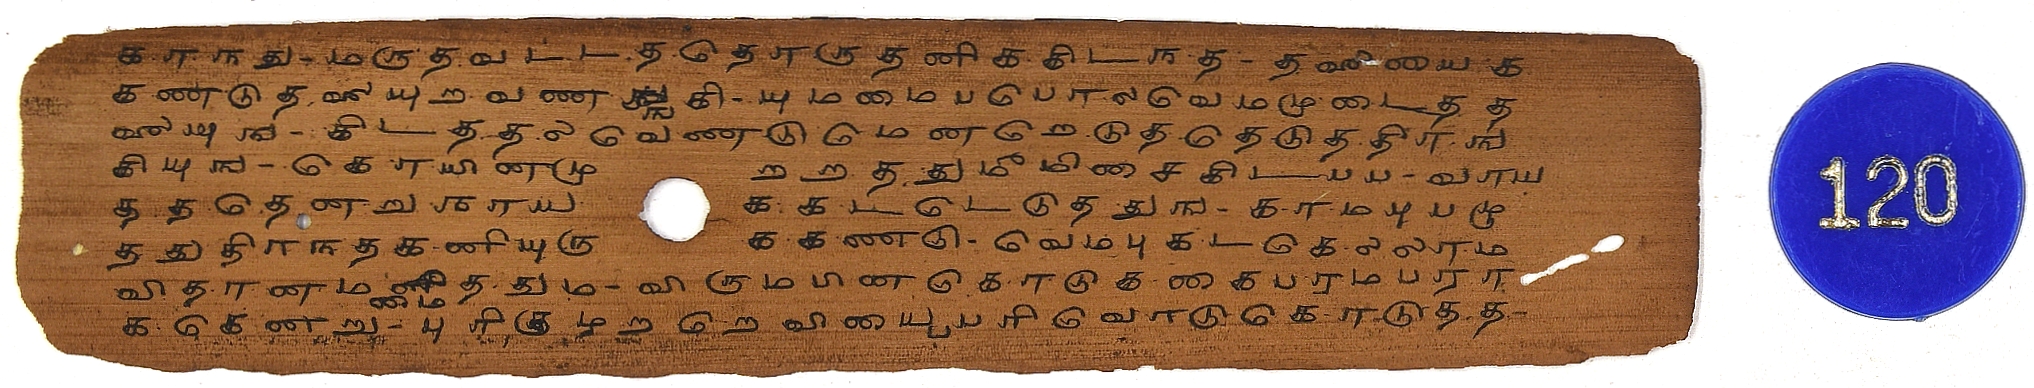 காநது-மருதவட்டத்தெராருதனிககிடநத-தலையைக
கணடுதலையுறவணங்கி-யுமமைபபொலவெமமுடைதத
லையுங-கிடததலவெணடுமெனறெடுதததெடுததிராங
கியுங-கொயினமு றறததுமீமிசைகிடபப-வாய
தததெனறுநாய ககடடெடுததுங-காமபுபமு
தததுதிராநதகணியுரு ககணடு-வெமபுகடகெலலாம
விதானமைததும-விருமபினகொடுகைபரமபரா
ககெனறு-புரிகுழறறெவியைபபரிவொடுகொடுதத-
120